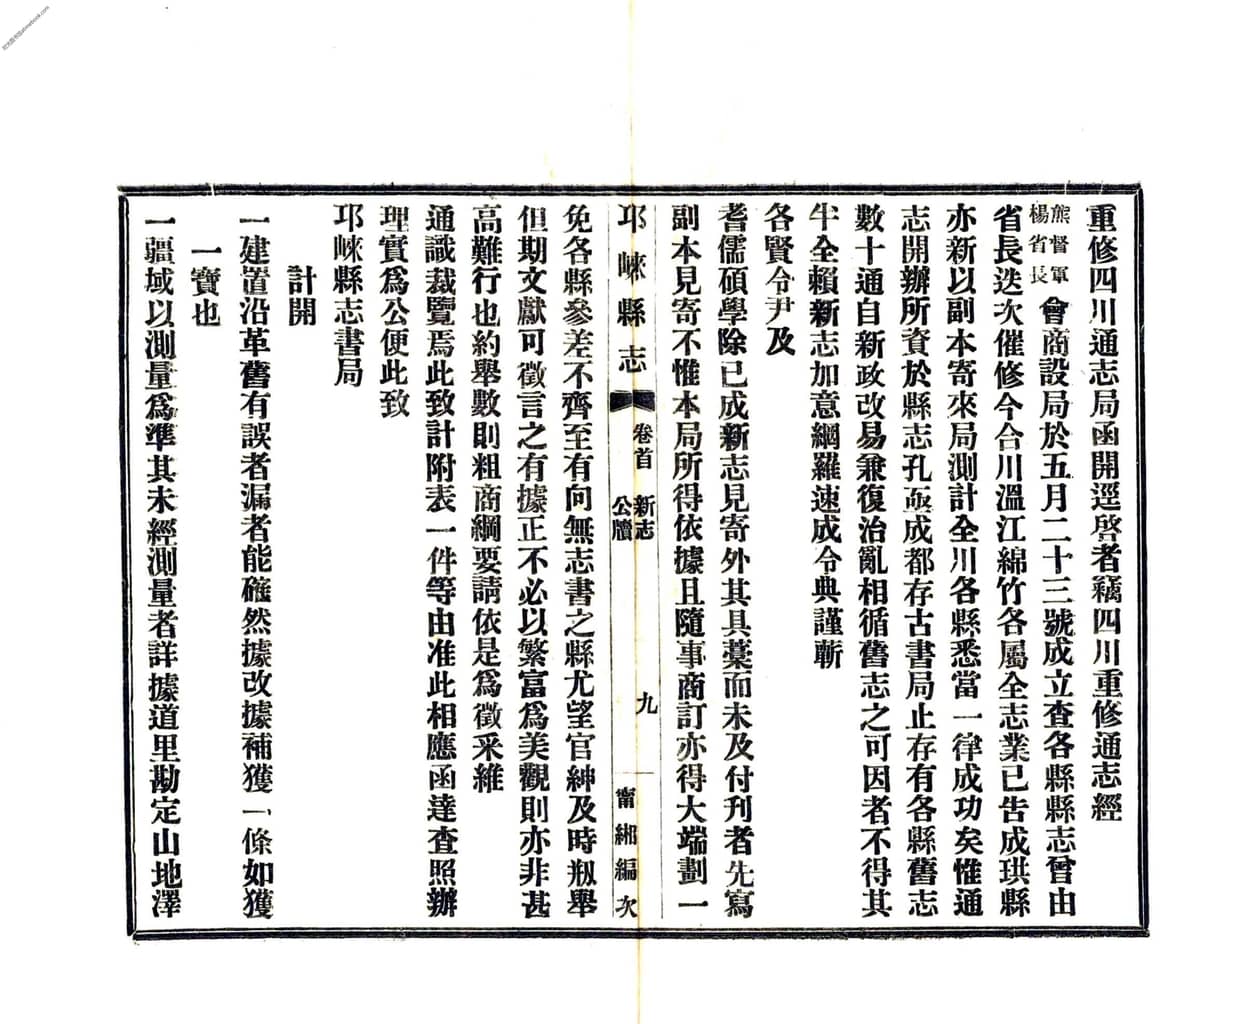 重修四川通志局函開逕啓者竊四川重修通志經
熊督軍
楊省長
會商設局於五月二十三號成立查各縣縣志曾由
省長迭次催修今合川溫江綿竹各屬全志業已告成珙縣
亦新以副本寄來局測計全川各縣悉當一律成功矣惟通
志開辦所資於縣志孔亟成都存古書局止存有各縣舊志
數十通自新政改易兼復治亂相循舊志之可因者不得其
半全賴新志加意網羅速成令典謹蘄
各賢令尹及
耆儒碩學除已成新志見寄外其具藁而未及付刊者先寫
副本見寄不惟本局所得依據且隨事商訂亦得大端劃一
邛崍縣志
卷首
新志
公牘
九
甯緗編次
免各縣參差不齊至有向無志書之縣尤望官紳及時剏舉
但期文獻可徵言之有據正不必以繁富爲美觀則亦非甚
高難行也約舉數則粗商綱要請依是爲徵采維
通識裁覽焉此致計附表一件等由准此相應函達查照辦
理實爲公便此致
邛崍縣志書局
計開
一建置沿革舊有誤者漏者能確然據改據補獲一條如獲
一寶也
一疆域以測量爲準其未經測量者詳據道里勘定山地澤